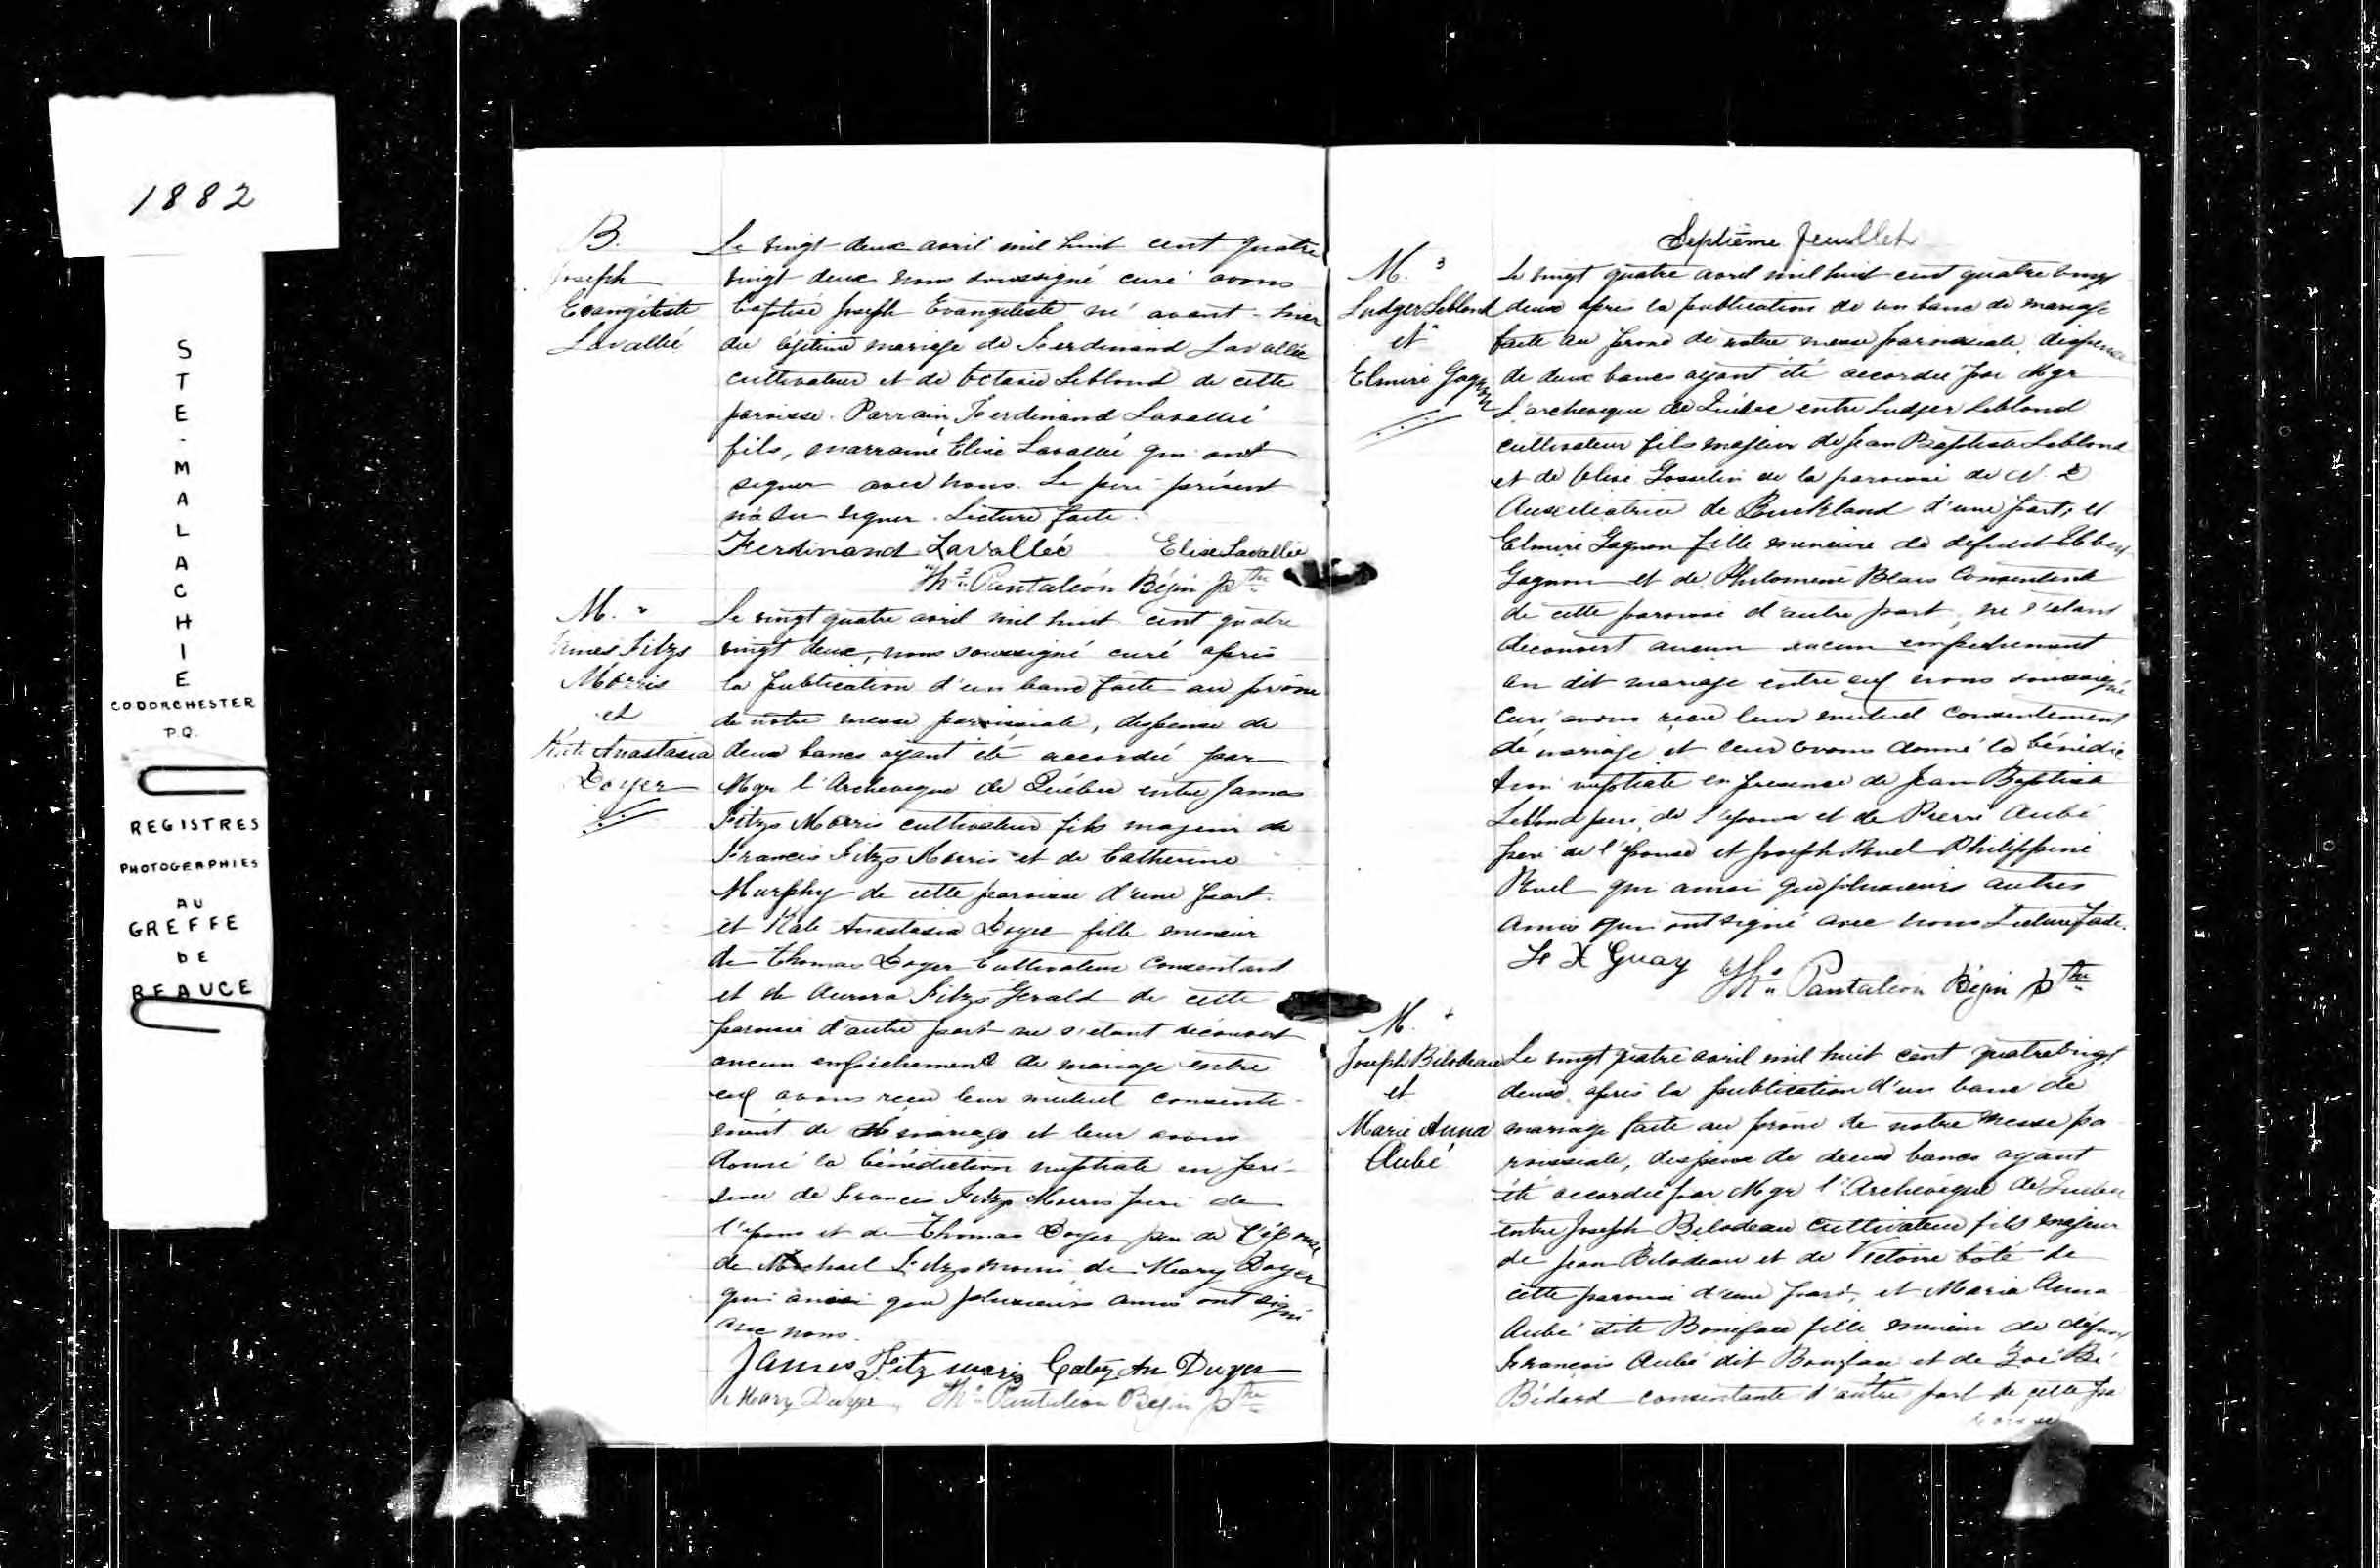 1882
STE-MALACHIE
CO DORCHESTER
P.Q.
REGISTRES
PHOTOGRAPHIES
AU
GREFFE
DE
BEAUCE
B.
Joseph
Evangéliste
Lavallié
Le vingt-deux avril mil huit cent quatre
vingt deux nous soussigné curé avons
baptisé Joseph Evangeliste né avant-hier
du légitime mariage de Ferdinand Lavallée
cultivateur et de Octavie Leblond de cette
paroisse. Parrain, Ferdinand Lavallié
fils, marraine Elise Lavallié qui ont
signer avec nous. Le père présent
n'a su signer. Lecture faite.
Ferdinand Lavalléé Elise Lavallée
Ths Pantaléon Bégin Ptre
M. 2
James Fitzs
Morris
et
Kate Anastasia
Doyer
Le vingt quatre avril mil huit cent quatre
vingt deux, nous soussigné curé après
la publication d'un banc faite au prône
de notre messe paroissiale, dispense de
deux bancs ayant été accordée par
Mgr l'Archeveque de Québec entre James
Fitzs Morris cultivateur fils majeur de
Francis Fitzs Morris et de Catherine
Murphy de cette paroisse d'une part.
et Kate Anastasia Doyer fille mineur
de Thomas Doyer Cultivateur consentant
et de Aurora Fitzs Gerald de cette
paroisse d'autre part ne s'etant découvert
aucun empêchement de mariage entre
eux avons reçu leur mutuel consente-
ment de mariage et leur avons
donné la bénédiction nuptiale en pré-
sence de Francis Fitzs Morris père de
l'epoux et de Thomas Doyer père de l'épouse
de Michael Fitzs morris, de Mary Doyer
qui ainsi que plusieurs amis ont signé
avec nous.
James Fitz maris Catey An Duyer
Mary Dwyer, Ths Pantaléon Begin Ptre
Septième feuillet
M. 3
Ludger Leblond
et
Elmire Gagnon
Le vingt quatre avril mil huit cent quatre vingt
deux après la publication de un banc de mariage
faite au prone de notre messe paroissiale, dispense
de deux bancs ayant été accordée par Mgr
L'archeveque de Québec entre Ludger Leblond
cultivateur fils majeur de Jean Baptiste Leblond
et de Elise Gosselin de la paroisse de N. D
Auxiliatrice de Buckland d'une part, et
Elmire Gagnon fille mineure de défunt
Gagnon et de Philomène Blais Consentente
de cette paroisse d'autre part, ne s'étant
découvert aucun aucun empechement
au dit mariage entre eux nous soussigné
Curé avons reçu leur mutuel consentement
de mariage et leur avons donné la bénédic
tion nuptiale en presence de Jean Baptiste
Leblond père de l'époux et de Pierre Aubé
père de l'épouse et Joseph Ruel Philippine
Ruel qui ainsi que plusieurs autres
amis qui ont signé avec nous Lecture faite.
F X Guay Ths Pantaléon Bégin Ptre
M. 4
Joseph Bilodeau
et
Marie Anna
Aubé
Le vingt quatre avril mil huit cent quatrevingt
deux après la publication d'un banc de
mariage faite au prône de notre messe pa
roissiale, dispense de deux bancs ayant
été accordée par Mgr l'Archevêque de Québec
entre Joseph Bilodeau cultivateur fils majeur
de Jean Bilodeau et de Victoire Côté de
cette paroisse d'une part, et Maria Anna
Aubé dite Boneface fille mineur de défunt
François Aubé dit Bonface et de Zoé Bé
Bédard consentante d'autre part de cette pa
roisse